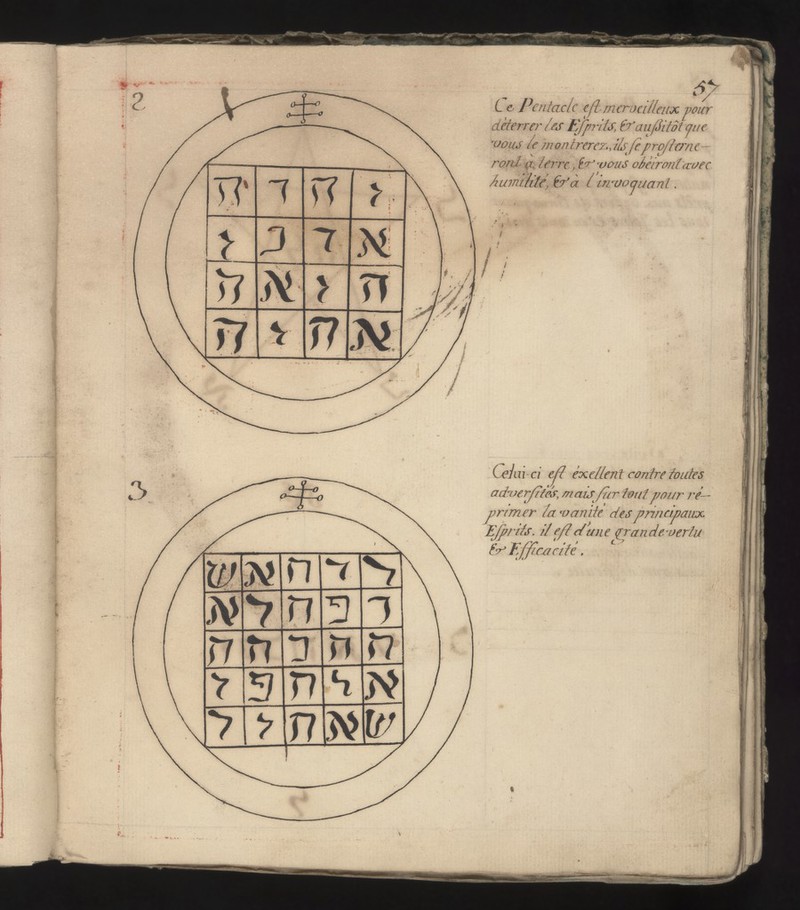 57
2
Ce Pentacle est merveilleux pour
déterrer les Esprits, & aussitôt que
vous le montrerez, ils se prosterne-
ront à terre, & vous obéiront avec
humilité, & à l'invoquant.
ה ד ה י
ג כ ד א
ה א ג ה
ה י ה א
3
Celui-ci est éxellent contre toutes
adversités, mais sur tout pour ré-
primer la vanité des principaux
Esprits. il est d'une grande vertu
& Efficacité.
ש א ח ד ר
א ל ח פ ד
ה ח כ ה ח
י פ ח ל א
ל י ח א ש